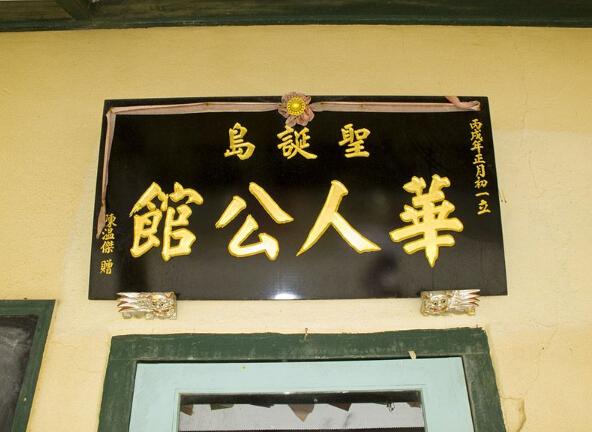 丙戌年正月初一立
聖誕島
華人公館
陳溫傑 贈